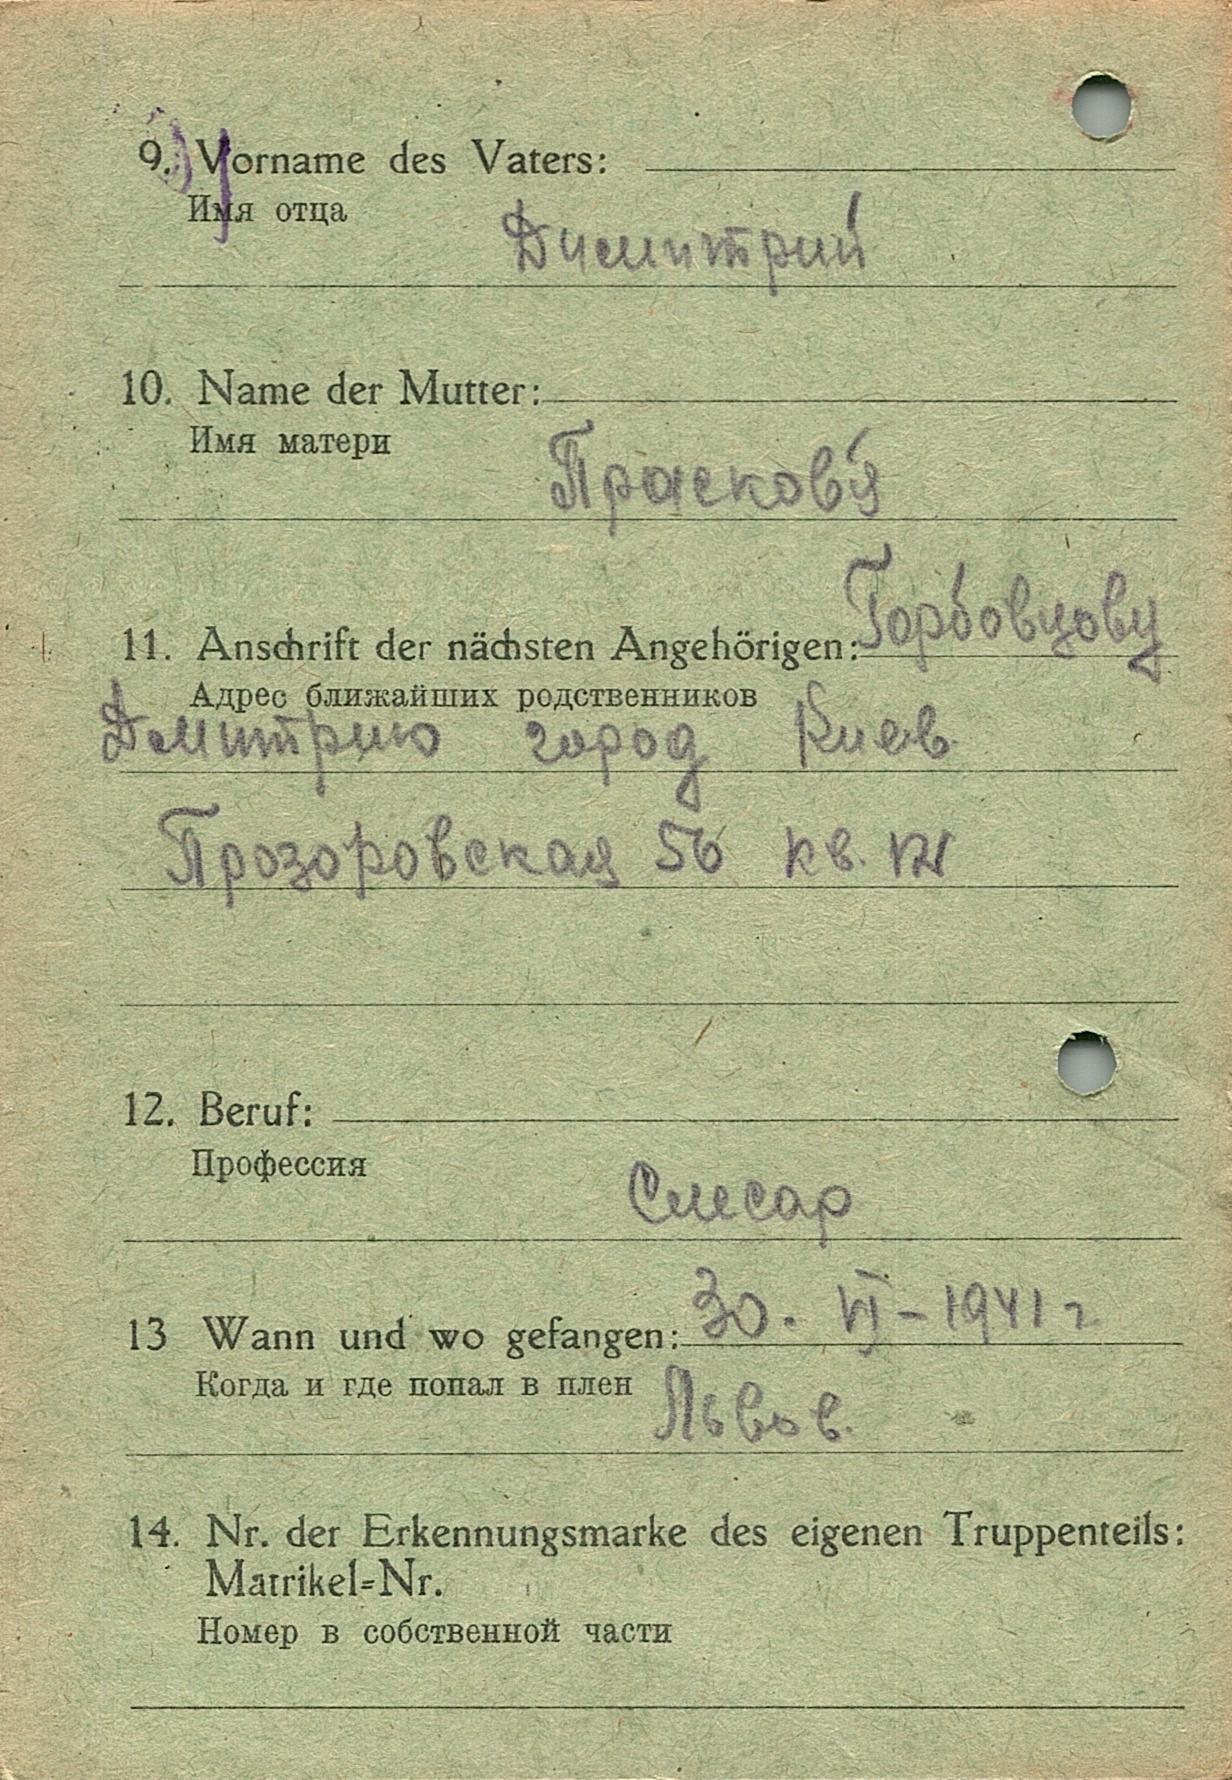 9. Vorname des Vaters:
Имя отца
Димитрий
10. Name der Mutter:
Имя матери
Прасковя
11. Anschrift der nächsten Angehörigen: Горбовцову
Адрес ближайших родственников
Дмитрию город Киев
Прозоровская 56 кв.
12. Beruf:
Профессия
Слесар
13 Wann und wo gefangen: 30. VI - 1941 г
Когда и где попал в плен
Львов.
14. Nr. der Erkennungsmarke des eigenen Truppenteils:
Matrikel=Nr.
Номер в собственной части